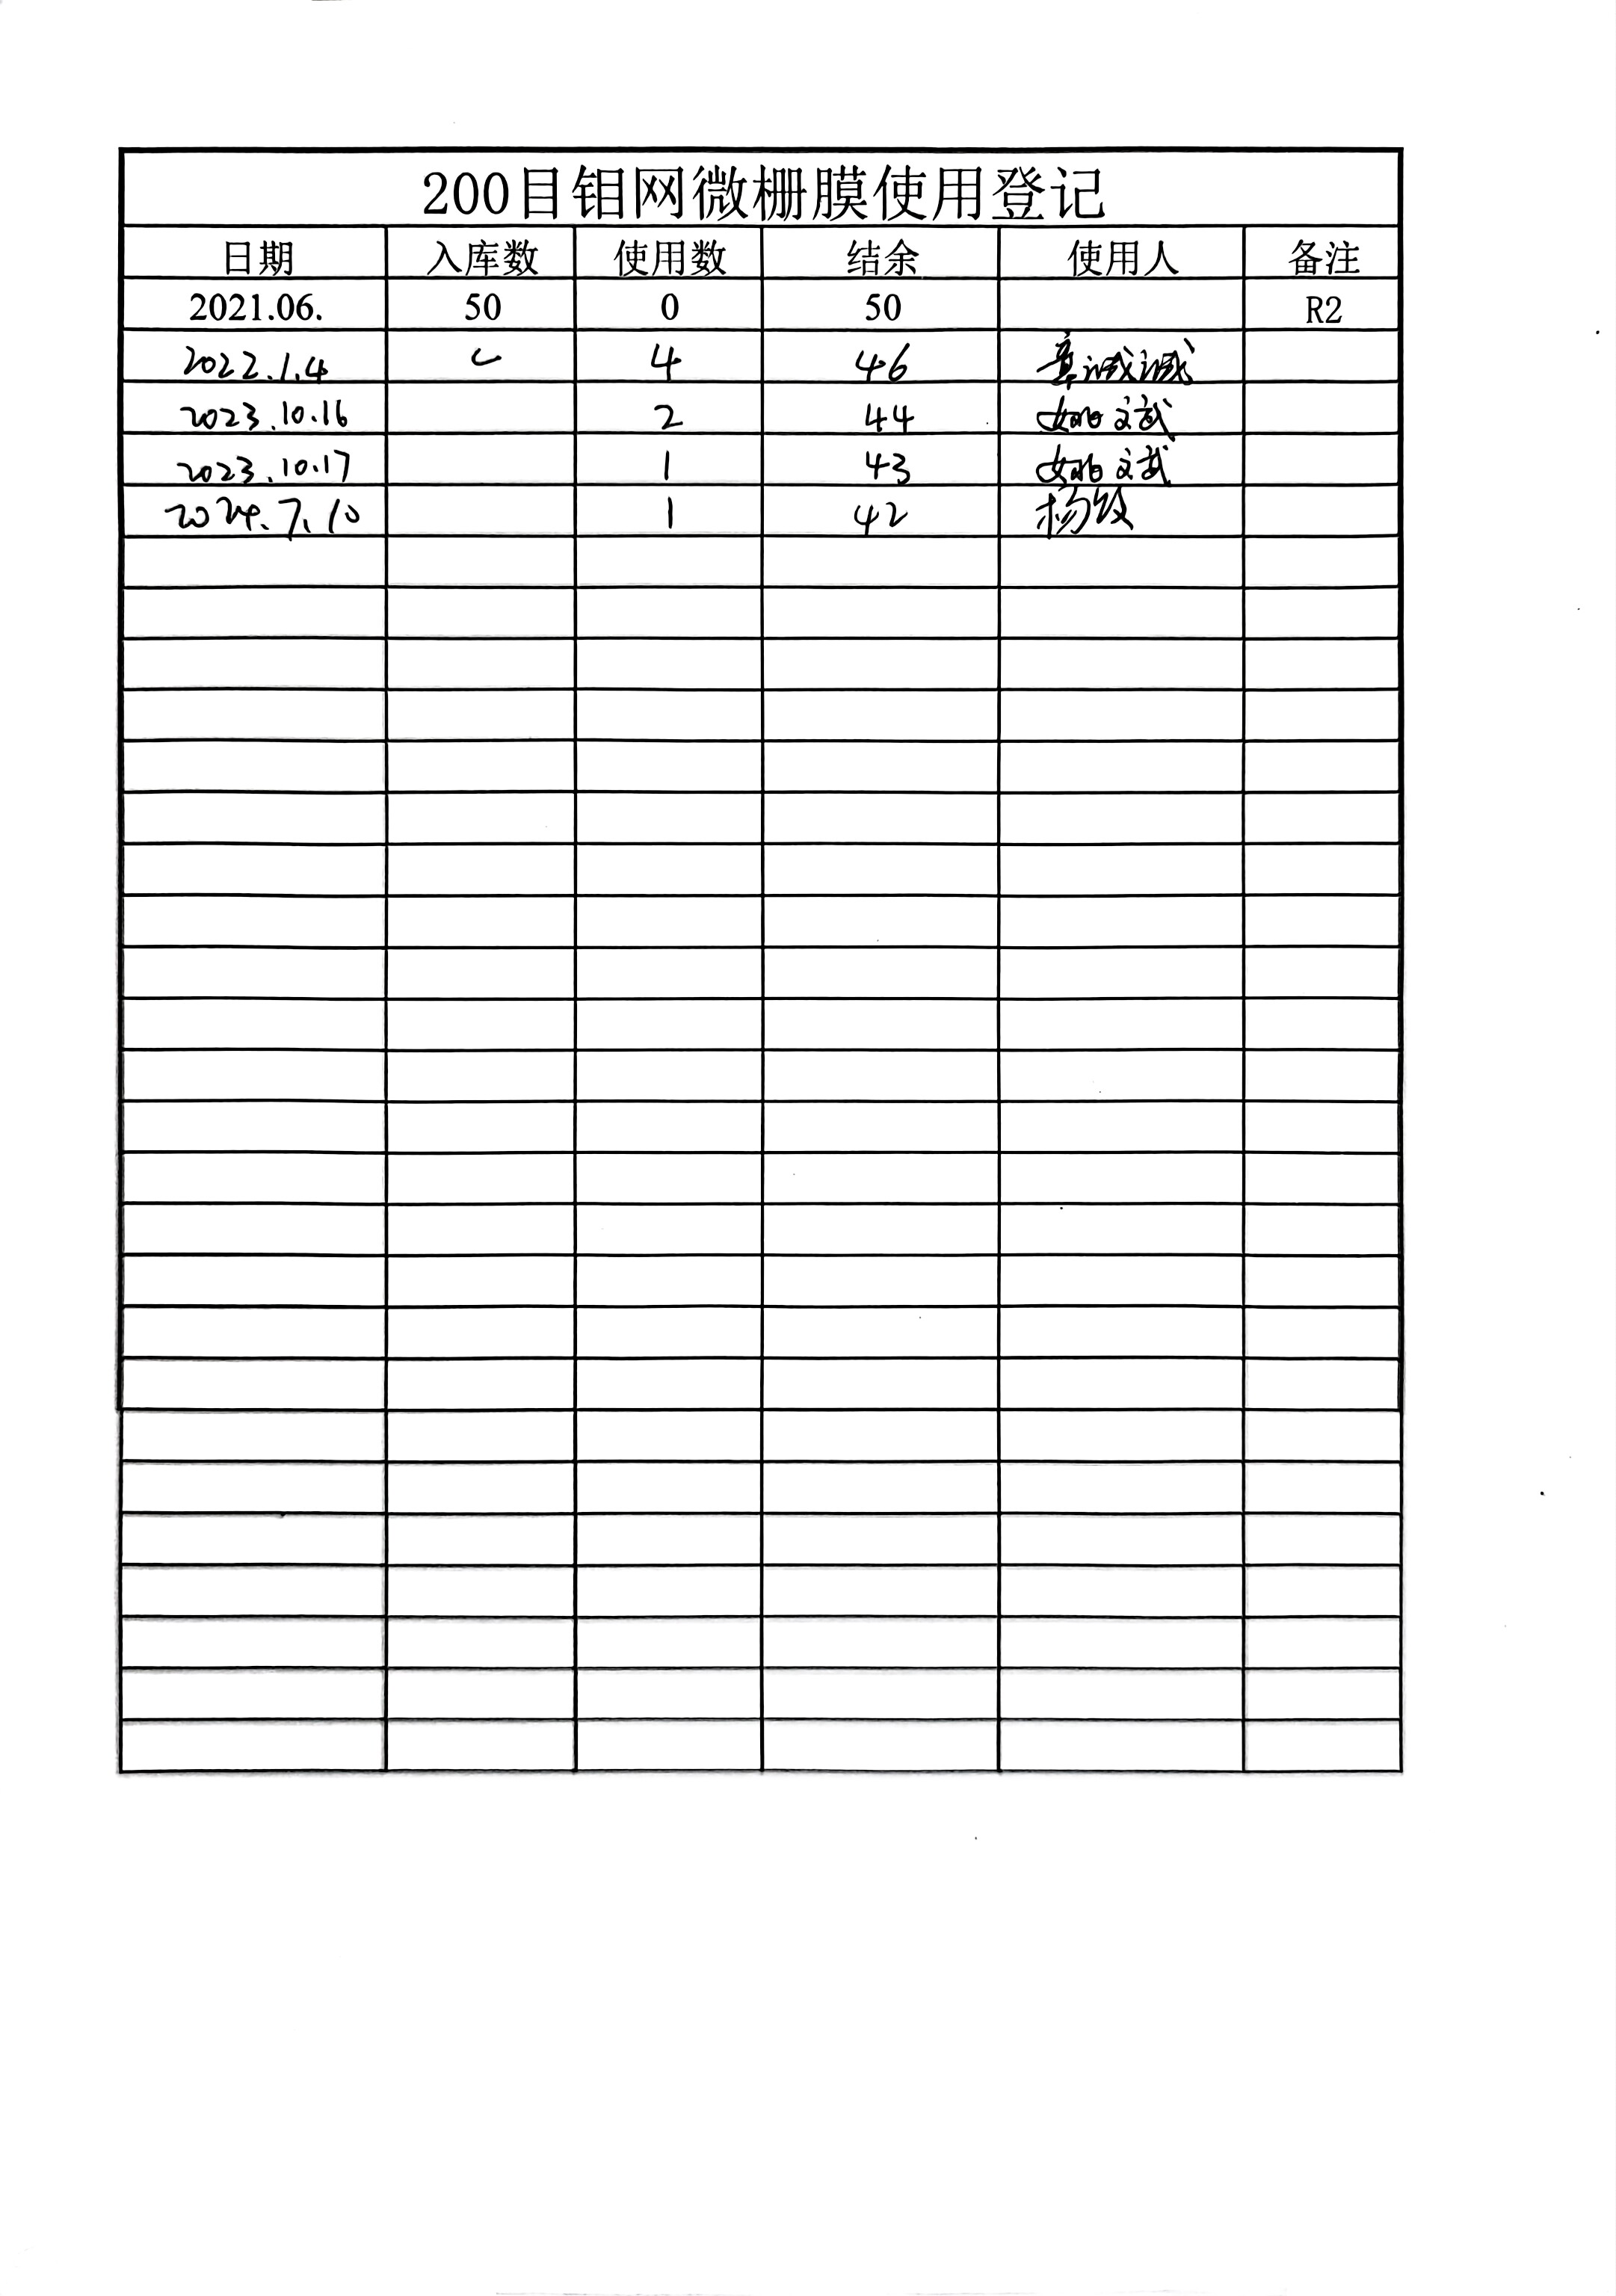 200目钼网微栅膜使用登记
日期 入库数 使用数 结余 使用人 备注
2021.06. 50 0 50 R2
2022.1.4 4 46 章诚诚
2023.10.16 2 44 姚文武
2023.10.17 1 43 姚文武
2024.7.10 1 42 杨